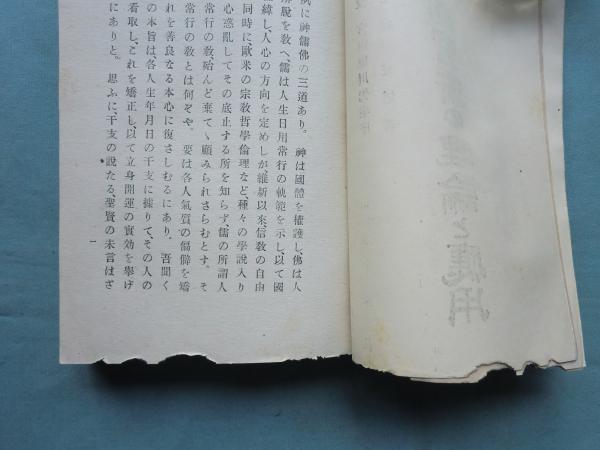 に神儒佛の三道あり。神は國體を擁護し、佛は人
解脱を敎へ、儒は人生日用常行の軌範を示し、以て國
經緯し、人心の方向を定めしが、維新以來、信敎の自由
同時に、歐米の宗敎哲學倫理など、種々の學說入り
心惑亂してその底止する所を知らず、儒の所謂人
常行の敎、殆んど棄てゝ顧みられざらむとす。そ
常行の敎とは何ぞや。要は各人氣質の偏僻を矯
れを善良なる本心に復さしむるにあり。吾聞く
の本旨は、各人生年月日の干支に據りて、その人の
看取し、これを矯正し、以て立身開運の實效を擧げ
にありと。思ふに、干支の說たる、聖賢の未言はざ
一
理論と應用